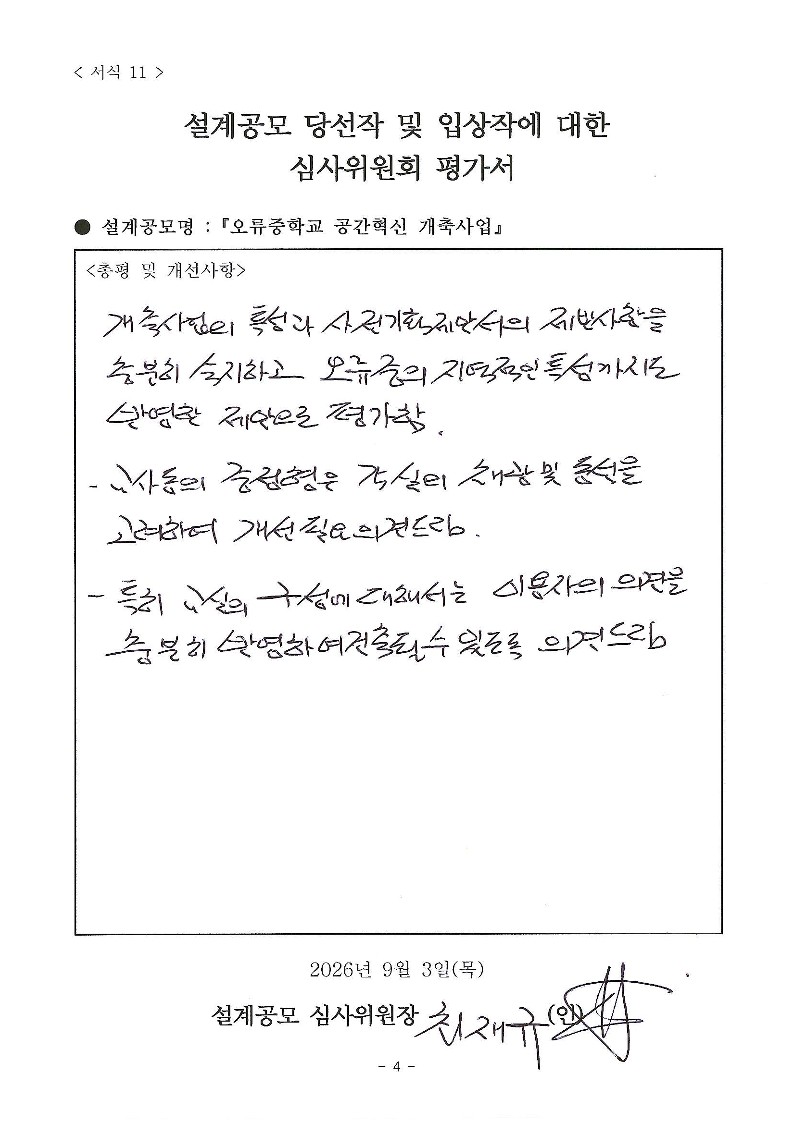 < 서식 11 >
설계공모 당선작 및 입상작에 대한
심사위원회 평가서
● 설계공모명 : 『오류중학교 공간혁신 개축사업』
<총평 및 개선사항>
개축사업의 특성과 사전기획제안서의 제반사항을
충분히 숙지하고 오류중의 지역적인 특성까지도
반영한 제안으로 평가함.
- 교사동의 중점형은 각실의 채광 및 동선을
고려하여 개선필요 의견드림.
- 특히 교실의 구성에 대해서는 이용자의 의견을
충분히 반영하여 건축될 수 있도록 의견드림
2026년 9월 3일(목)
설계공모 심사위원장 최재규 (인)
- 4 -